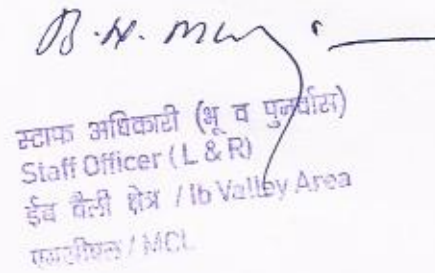 स्टाफ अधिकारी (भू व पुनर्वास)
Staff Officer (L & R)
ईब वैली क्षेत्र / Ib Valley Area
एमसीएल / MCL